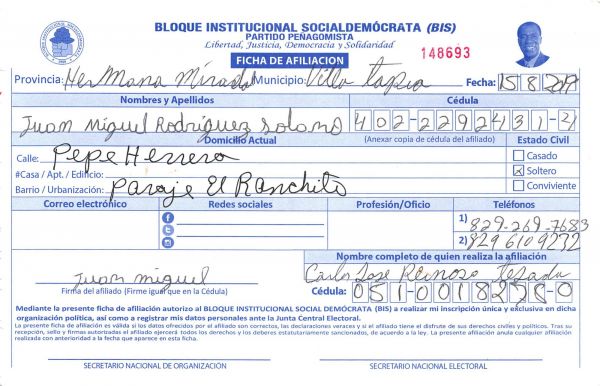 BLOQUE INSTITUCIONAL SOCIALDEMÓCRATA (BIS)
PARTIDO PEÑAGOMISTA
Libertad, Justicia, Democracia y Solidaridad
FICHA DE AFILIACION 148693
Provincia: HerMana Mirabal Municipio: Villa Tapia Fecha: 15/8/2019
Nombres y Apellidos Cédula
Juan Miguel Rodriguez Solano 402-2292431-2
Domicilio Actual (Anexar copia de cédula del afiliado) Estado Civil
Calle: Pepe Herrera Casado
#Casa / Apt. / Edificio: Soltero
Barrio / Urbanización: Paraje El Ranchito Conviviente
Correo electrónico Redes sociales Profesión/Oficio Teléfonos
1) 829-269-7683
2) 829 610 9232
Nombre completo de quien realiza la afiliación
Juan miguel Carlos Jose Reinoso Tejada
Firma del afiliado (Firme igual que en la Cédula) Cédula: 051-0018278-0
Mediante la presente ficha de afiliación autorizo al BLOQUE INSTITUCIONAL SOCIAL DEMÓCRATA (BIS) a realizar mi inscripción única y exclusiva en dicha
organización política, así como a registrar mis datos personales ante la Junta Central Electoral.
La presente ficha de afiliación es válida si los datos ofrecidos por el afiliado son correctos, las declaraciones veraces y si el afiliado tiene el disfrute de sus derechos civiles y políticos. Tras su
recepción, sello y firmas autorizadas el afiliado ejercerá todos los derechos y los deberes estatutariamente sancionados, de acuerdo a la ley. La presente afiliación anula cualquier afiliación
realizada con anterioridad a la fecha que aparece en esta ficha.
SECRETARIO NACIONAL DE ORGANIZACIÓN SECRETARIO NACIONAL ELECTORAL